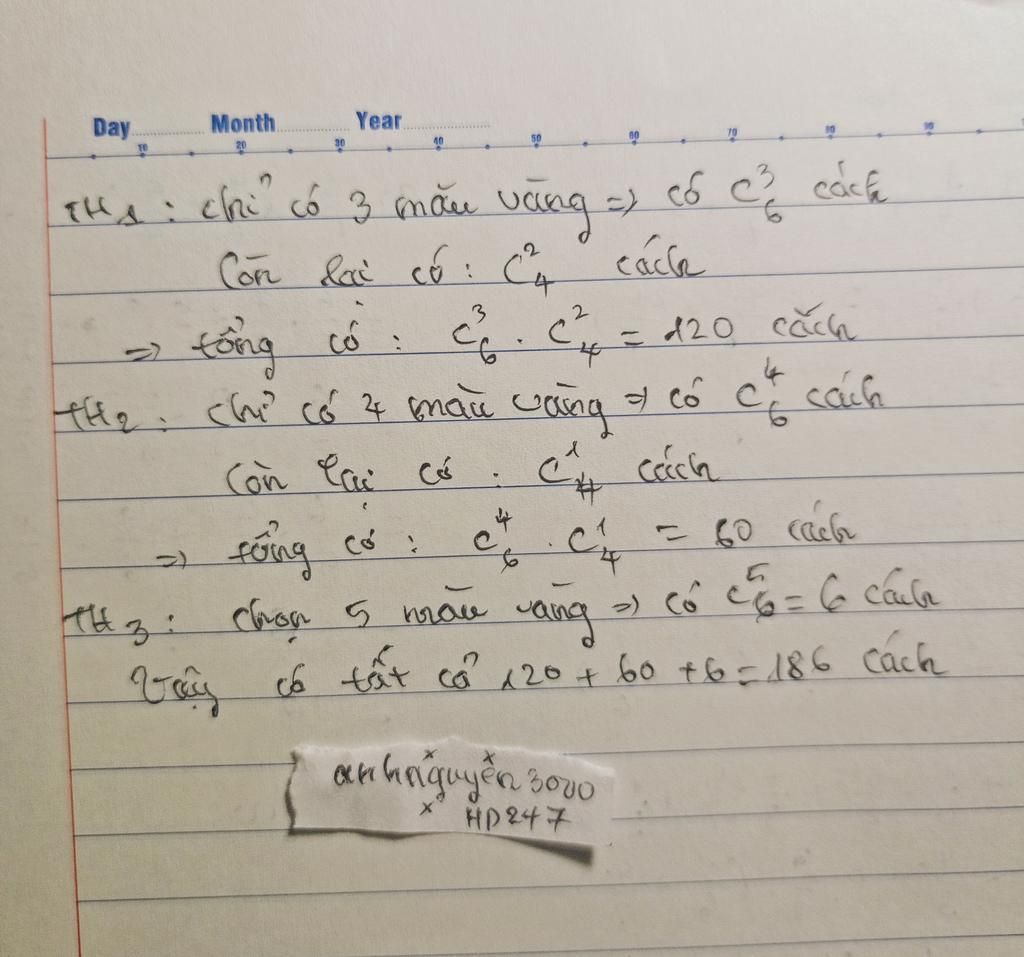 Day Month Year
10 20 30 40 50 60 70 80 90
TH1 : chỉ có 3 màu vàng => có C³₆ cách
Còn lại có : C²₄ cách
=> tổng có : C³₆ . C²₄ = 120 cách
TH2 : chỉ có 4 màu vàng => có C⁴₆ cách
Còn lại có : C¹₄ cách
=> tổng có : C⁴₆ . C¹₄ = 60 cách
TH3 : chọn 5 màu vàng => có C⁵₆ = 6 cách
Vậy có tất cả 120 + 60 + 6 = 186 cách
anhnguyễn3000
HD247